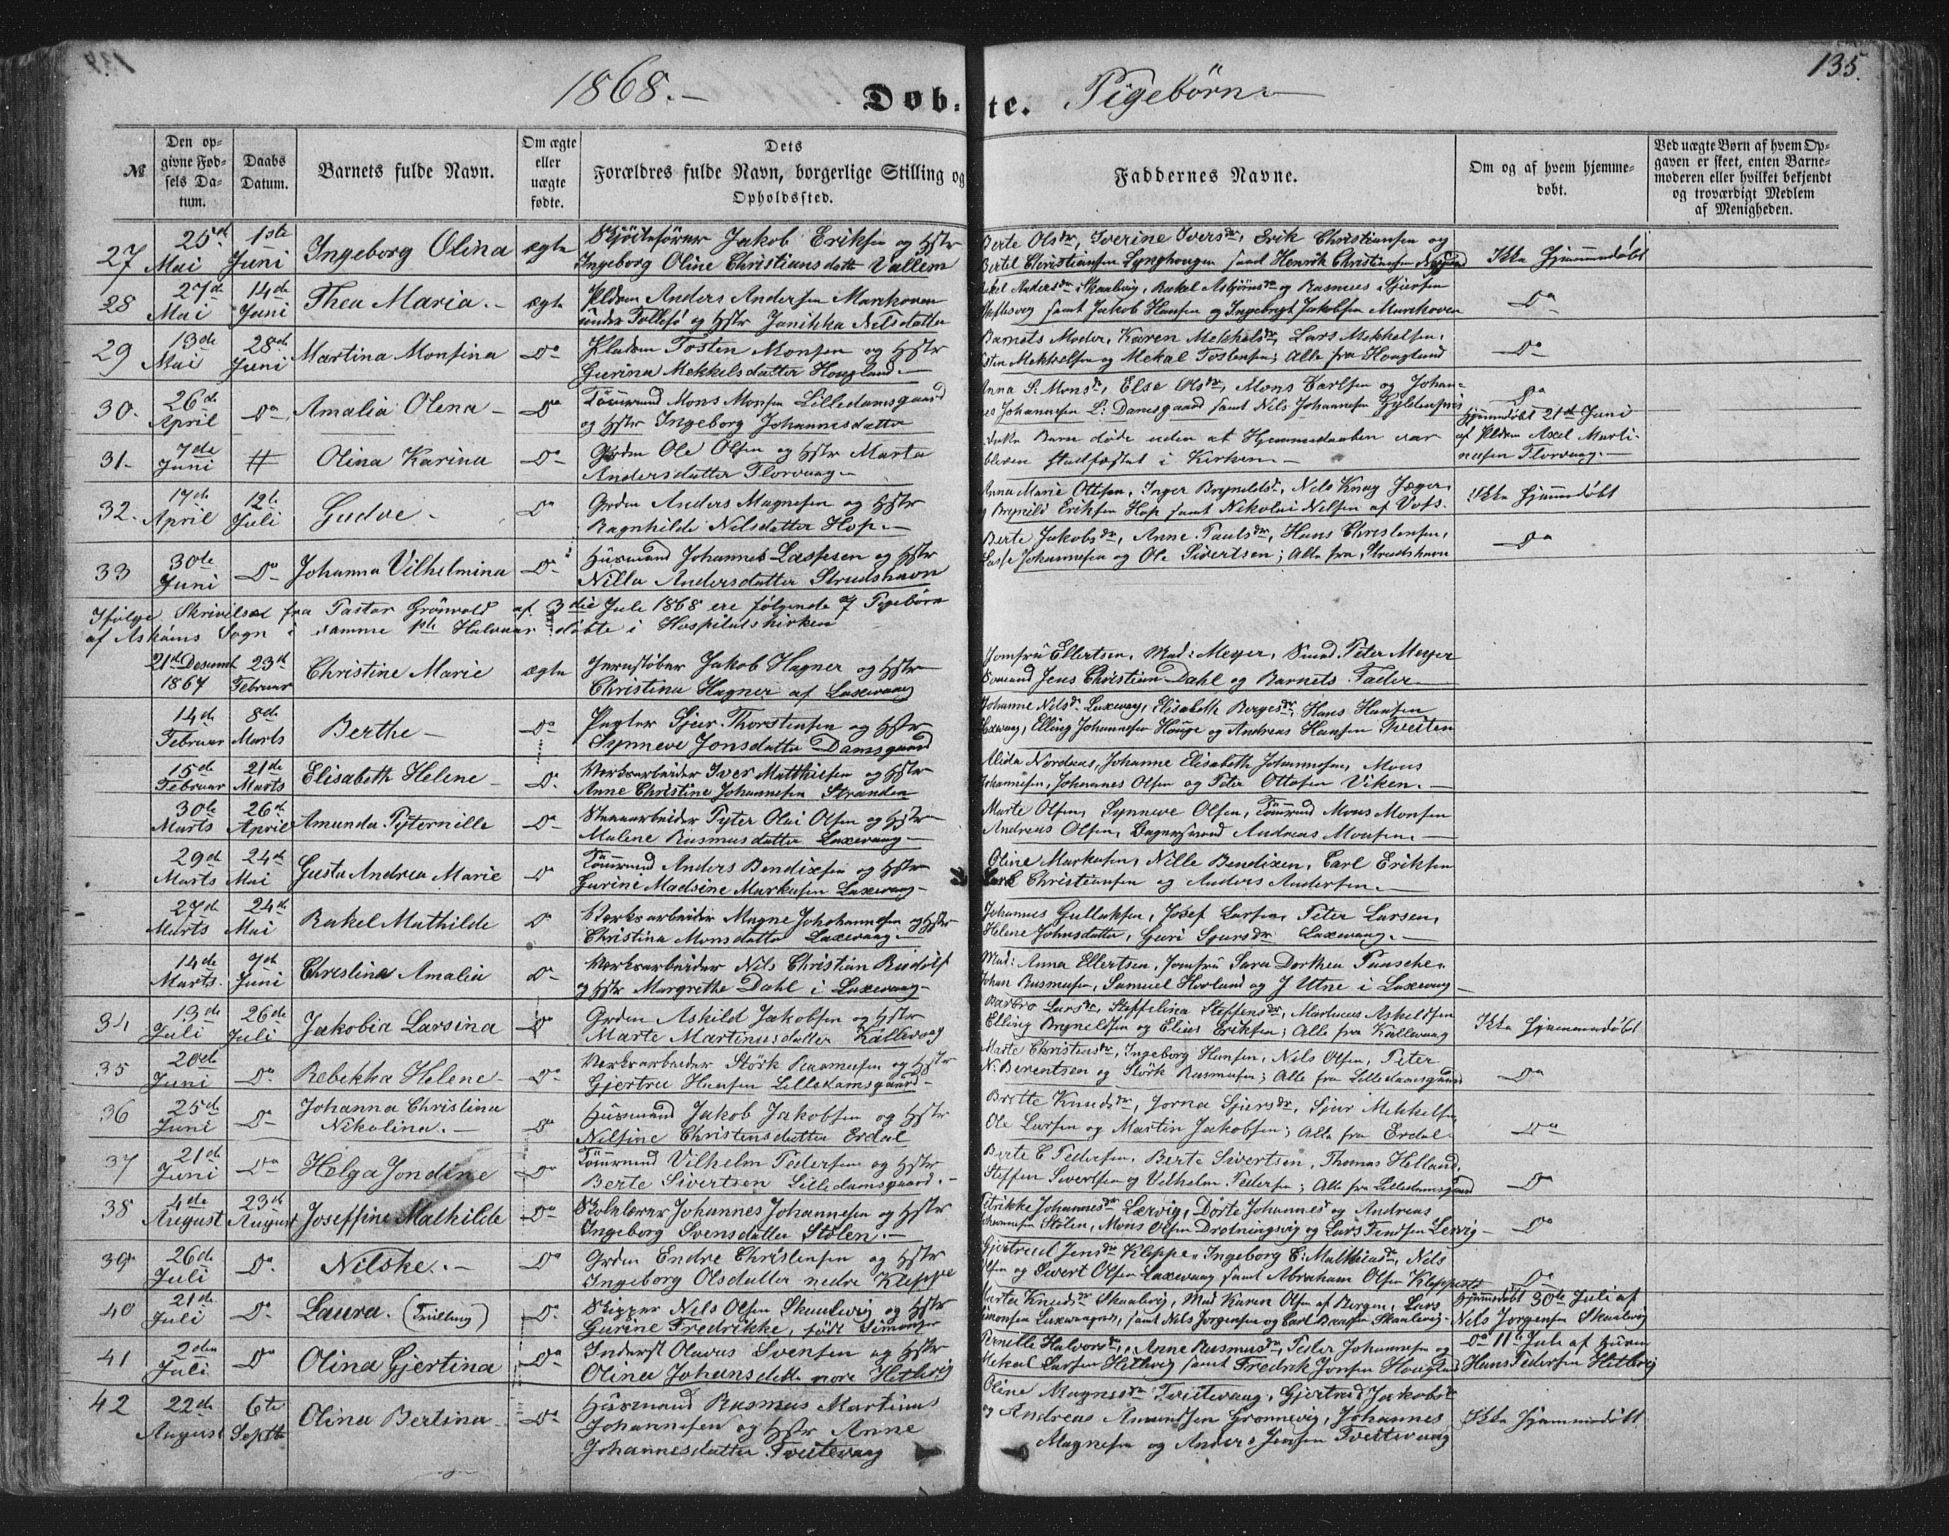 1868.
Døb-te. Pigebørn
135.
№
Den op-
givne Fød-
sels Da-
tum.
Daabs
Datum.
Barnets fulde Navn.
Om ægte
eller
uægte
fødte.
Dets
Forældres fulde Navn, borgerlige Stilling og
Opholdssted.
Faddernes Navne.
Om og af hvem hjemme-
døbt.
Ved uægte Børn af hvem Op-
gaven er skeet, enten Barne-
moderen eller hvilket bekjendt
og troværdigt Medlem
af Menigheden.
27 25de Mai 1ste Juni Ingeborg Olina ægte
Jakob Eriksen og Hstr
Ingeborg Oline Christiansdatter Vallem
Berte Olsdr, Iverine Iversdr, Erik Christiansen og
Bertel Christiansen Lynghougen samt Henrik Christiansen
Ikke Hjemmedøbt
28 27de Mai 14de Juni Thea Maria ægte
Pldsm Anders Andersen Marehoven
under Follesø og Hstr Janikka Nilsdatter
Rakel Andersdr Skaalvig, Rakel Asbjørnsdr og Rasmus
samt Jakob Hansen og Ingebrigt Jakobsen Marehoven
Do
29 13de Mai 28de Juni Martina Monsina Do
Pladsm Tosten Monsen og Hstr
Gurina Mekkelsdatter Hougland
Barnets Moder, Karen Mekkelsdr, Lars Mekkelsen,
Mekkelsen og Mekal Tostensen; Alle fra Hougland
Do
30. 26de April Do Amalia Olena Do
Tømmnd Mons Monsen Lilledamsgaard
og Hstr Ingeborg Johannesdatter
Anna S. Monsdr, Else Olsdr, Mons Carlsen og Johan-
es Johannesen L: Damsgaard samt Nils Johannesen Gyldenpris
Do
31. 7de Juni # Olina Karina Do
Grdm Ole Olsen og Hstr Marta
Andersdatter Florvaag
dette Barn døde uden at Hjemmedaaben var
bleven stadfæstet i Kirken
Hjemmdøbt 21de Juni
af Pldsm Axel Marti-
nusen Florvaag
32. 17de April 12te Juli Gudve Do
Grdm Anders Magnesen og Hstr
Ragnhilde Nilsdatter Hop
Anna Marie Ottesen, Inger Brynildsdr, Nils Knag Jæger,
Brynild Eriksen Hop samt Nikolai Nilsen af Vofs.
Ikke Hjemmdøbt
33 30te Juni Do Johanna Vilhelmina Do
Huusmand Johannes Lassesen og Hstr
Nilla Andersdatter Strudshavn
Berte Jakobsdr, Anne Paulsdr, Hans Christensen,
Lasse Johannesen og Ole Sivertsen; Alle fra Strudshavn
Do
Ifølge Skrivelse fra Pastor Grønvold af 3die Juli 1868 ere følgende 7 Pigebørn
af Askøens Sogn i samme 1ste Halvaar døbte i Hospitalskirken
21de Decemb 1867 23de Februar Christine Marie ægte
Jernstøber Jakob Hagner og Hstr
Christina Hagner af Laxevaag
Jomfru Ellertsen, Mad: Meyer, Smed Peter Meyer
Sømand Jens Christian Dahl og Barnets Fader
14de Februar 8de Marts Berthe Do
Pagter Sjur Thorstensen og Hstr
Synneve Jonsdatter Damsgaard
Johanne Nilsdr Laxevaag, Elisabeth Bergesdr, Hans Hansen
Laxevaag, Elling Johannesen Houge og Andreas Hansen Tvesten
15de Februar 21de Marts Elisabeth Helene Do
Værksarbeider Iver Matthiesen og Hstr
Anne Christine Johannesen Stranden
Alida Nordnes, Johanne Elisabeth Johannesen, Mons
Johannesen, Johannes Olsen og Peter Ottesen Viken.
30te Marts 26de April Amunda Pyternille Do
Pyter Olai Olsen og Hstr
Malene Rasmusdatter Laxevaag
Marte Olsen, Synneve Olsen, Tømmnd Mons Monsen
Andreas Olsen, Andreas Monsen
29de Marts 24de Mai Gusta Andrea Marie Do
Tømmnd Anders Bendixsen og Hstr
Gurine Madsine Markusen Laxevaag
Oline Markusen, Nille Bendixen, Carl Eriksen
Christiansen og Anders Andersen
27de Marts 24de Mai Rakel Mathilde Do
Værksarbeider Magne Johohannesen og Hstr
Christina Monsdatter Laxevaag
Johannes Gullaksen, Josef Larsen, Peter Larsen,
Helene Johnsdatter, Guri Sjursdr Laxevaag
14de Marts 7de Juni Christine Amalia Do
Værksarbeider Nils Christian Rudolf
og Hstr Margrethe Dahl i Laxevaag
Mad: Anna Ellertsen, Jomfru Sara Dorthea Paasche,
Johan Rasmusen, Samuel Hovland og J Utne i Laxevaag
34 13de Juli 26de Juli Jakobia Larsina Do
Grdm Askild Jakobsen og Hstr
Marte Martinusdatter Kallevog
Barbro Larsdr, Steffelina Steffensdr, Martinus Askeldsen
Elling Bryneldsen og Elias Eriksen; Alle fra Kallevaag
Ikke Hjemmedøbt
35 20de Juni Do Rebekka Helene Do
Værksarbeider Størk Rasmusen og Hstr
Gjertru Hansen Lilledamsgaard
Marte Christensdr, Ingeborg Hansen, Nils Olsen, Peter
N. Berentsen og Størk Rasmusen; Alle fra Lilledamsgaard
Do
36 25de Juni Do Johanna Christina Nikolina. Do
Huusmand Jakob Jakobsen og Hstr
Nilsine Christensdatter Erdal
Brette Knudsdr, Jorna Sjursdr, Sjur Mekkelsen
Ole Larsen og Martin Jakobsen; Alle fra Erdal
Do
37 21de Juni Do Helga Jondine Do
Tømmnd Vilhelm Pedersen og Hstr
Berte Sivertsen Lilledamsgaard
Berte C Pedersen, Berte Sivertsen, Thomas Helland,
Steffen Sivertsen og Vilhelm Pedersen; Alle fra Lilledamsgaard
Do
38 4de August 23de August Joseffine Mathilde Do
Skolelærer Johannes Johannesen og Hstr
Ingeborg Svensdatter Stølen
Petrikke Johannesdr Lærvig, Dorte Johannesdr og Andreas
Johannesen Stølen, Mons Olsen Drotningsvig og Lars Lervig
Do
39 26de Juli Do Nilske. Do
Grdm Endre Christensen og Hstr
Ingeborg Olsdatter nedre Kleppe
Gjertrud Jensdr Kleppe, Ingeborg C: Mathiasdr, Nils
Olsen og Sivert Olsen Laxevaag samt Abraham Olsen Kleppestø
Do
40 21de Juli Do Laura. (Tvilling) Do
Skipper Nils Olsen Skaalevig og Hstr
Gurine Fredrikke, født Simonsen
Marta Knudsdr Skaalevig, Mad Karen Olsen af Bergen, Lars
Simonsen Laxevaagnes, samt Nils Jørgensen og Carl Skaalevig
Hjemmdøbt 30te Juli af
Nils Jørgensen Skaalevig
41 2den Juli Do Olina Gjertina Do
Inderst Olavus Svensen og Hstr
Olina Johansdatter nore Hetlevig
Pernille Halvorsdr, Anne Rasmusdr, Peder Johannesen og
Mekal Larsen Hetlevig samt Fredrik Jonsen Hougland
Do 11te Jule af
Hans Pedersen Hetlevig
42 22de August 6te Septb Olina Bertina Do
Huusmand Rasmus Martinus
Johannesen og Hstr Anne
Johannesdatter Tveitevaag
Oline Magnesdr Tveitevaag, Gjertrud Jakobsdr
og Andreas Amundsen Grønnevig, Johannes
Magnesen og Anders Jensen Tveitevaag
Ikke Hjemmedøbt